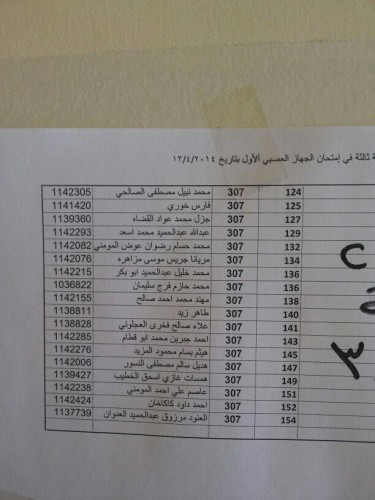 ة ثالثة في إمتحان الجهاز العصبي الأول بتاريخ ١٣/٤/٢٠١٤
124 307 محمد نبيل مصطفى الصالحي 1142305
125 307 فارس خوري 1141420
127 307 جزل محمد عواد القضاه 1139360
129 307 عبدالله عبدالحميد محمد اسعد 1142293
132 307 محمد حسام رضوان عوض المومني 1142082
134 307 مريانا جريس موسى مزاهره 1142076
136 307 محمد خليل عبدالحميد ابو بكر 1142215
136 307 محمد حازم فرج سليمان 1036822
138 307 مهند محمد احمد صالح 1142155
140 307 طاهر زيد 1138811
141 307 علاء صالح فخرى العجلوني 1138828
143 307 احمد جبرين محمد ابو قطام 1142285
145 307 هيثم بسام محمود المزيد 1142276
147 307 هديل سالم مصطفى النسور 1142006
149 307 همسات غازي اسحق الخطيب 1139427
151 307 عاصم علي احمد المومني 1142238
152 307 احمد داود كاكاخان 1142424
154 307 العنود مرزوق عبدالحميد العدوان 1137739